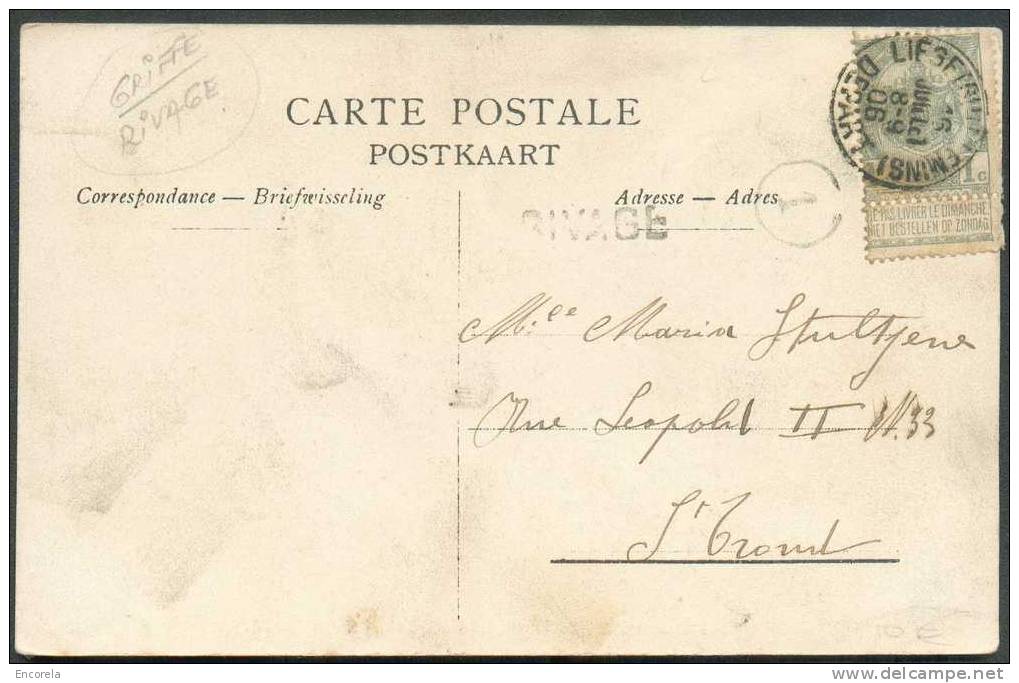 GRIFFE
RIVAGE
CARTE POSTALE
POSTKAART
Correspondance — Briefwisseling
Adresse — Adres
RIVAGE
1
DEPART
16
JUIL
8-9
06
1c
NE PAS LIVRER LE DIMANCHE
NIET BESTELLEN OP ZONDAG
Mlle Maria Stultjens
Rue Leopold II N.33
St Trond
10 €
Encorela
www.delcampe.net